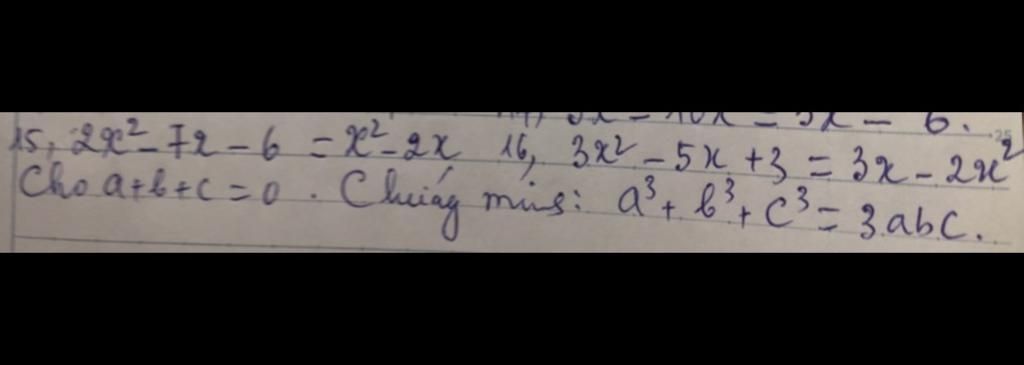 15, 2x² - 7x - 6 = x² - 2x 16, 3x² - 5x + 3 = 3x - 2x²
Cho a+b+c = 0 . Chứng minh: a³ + b³ + c³ = 3abc.